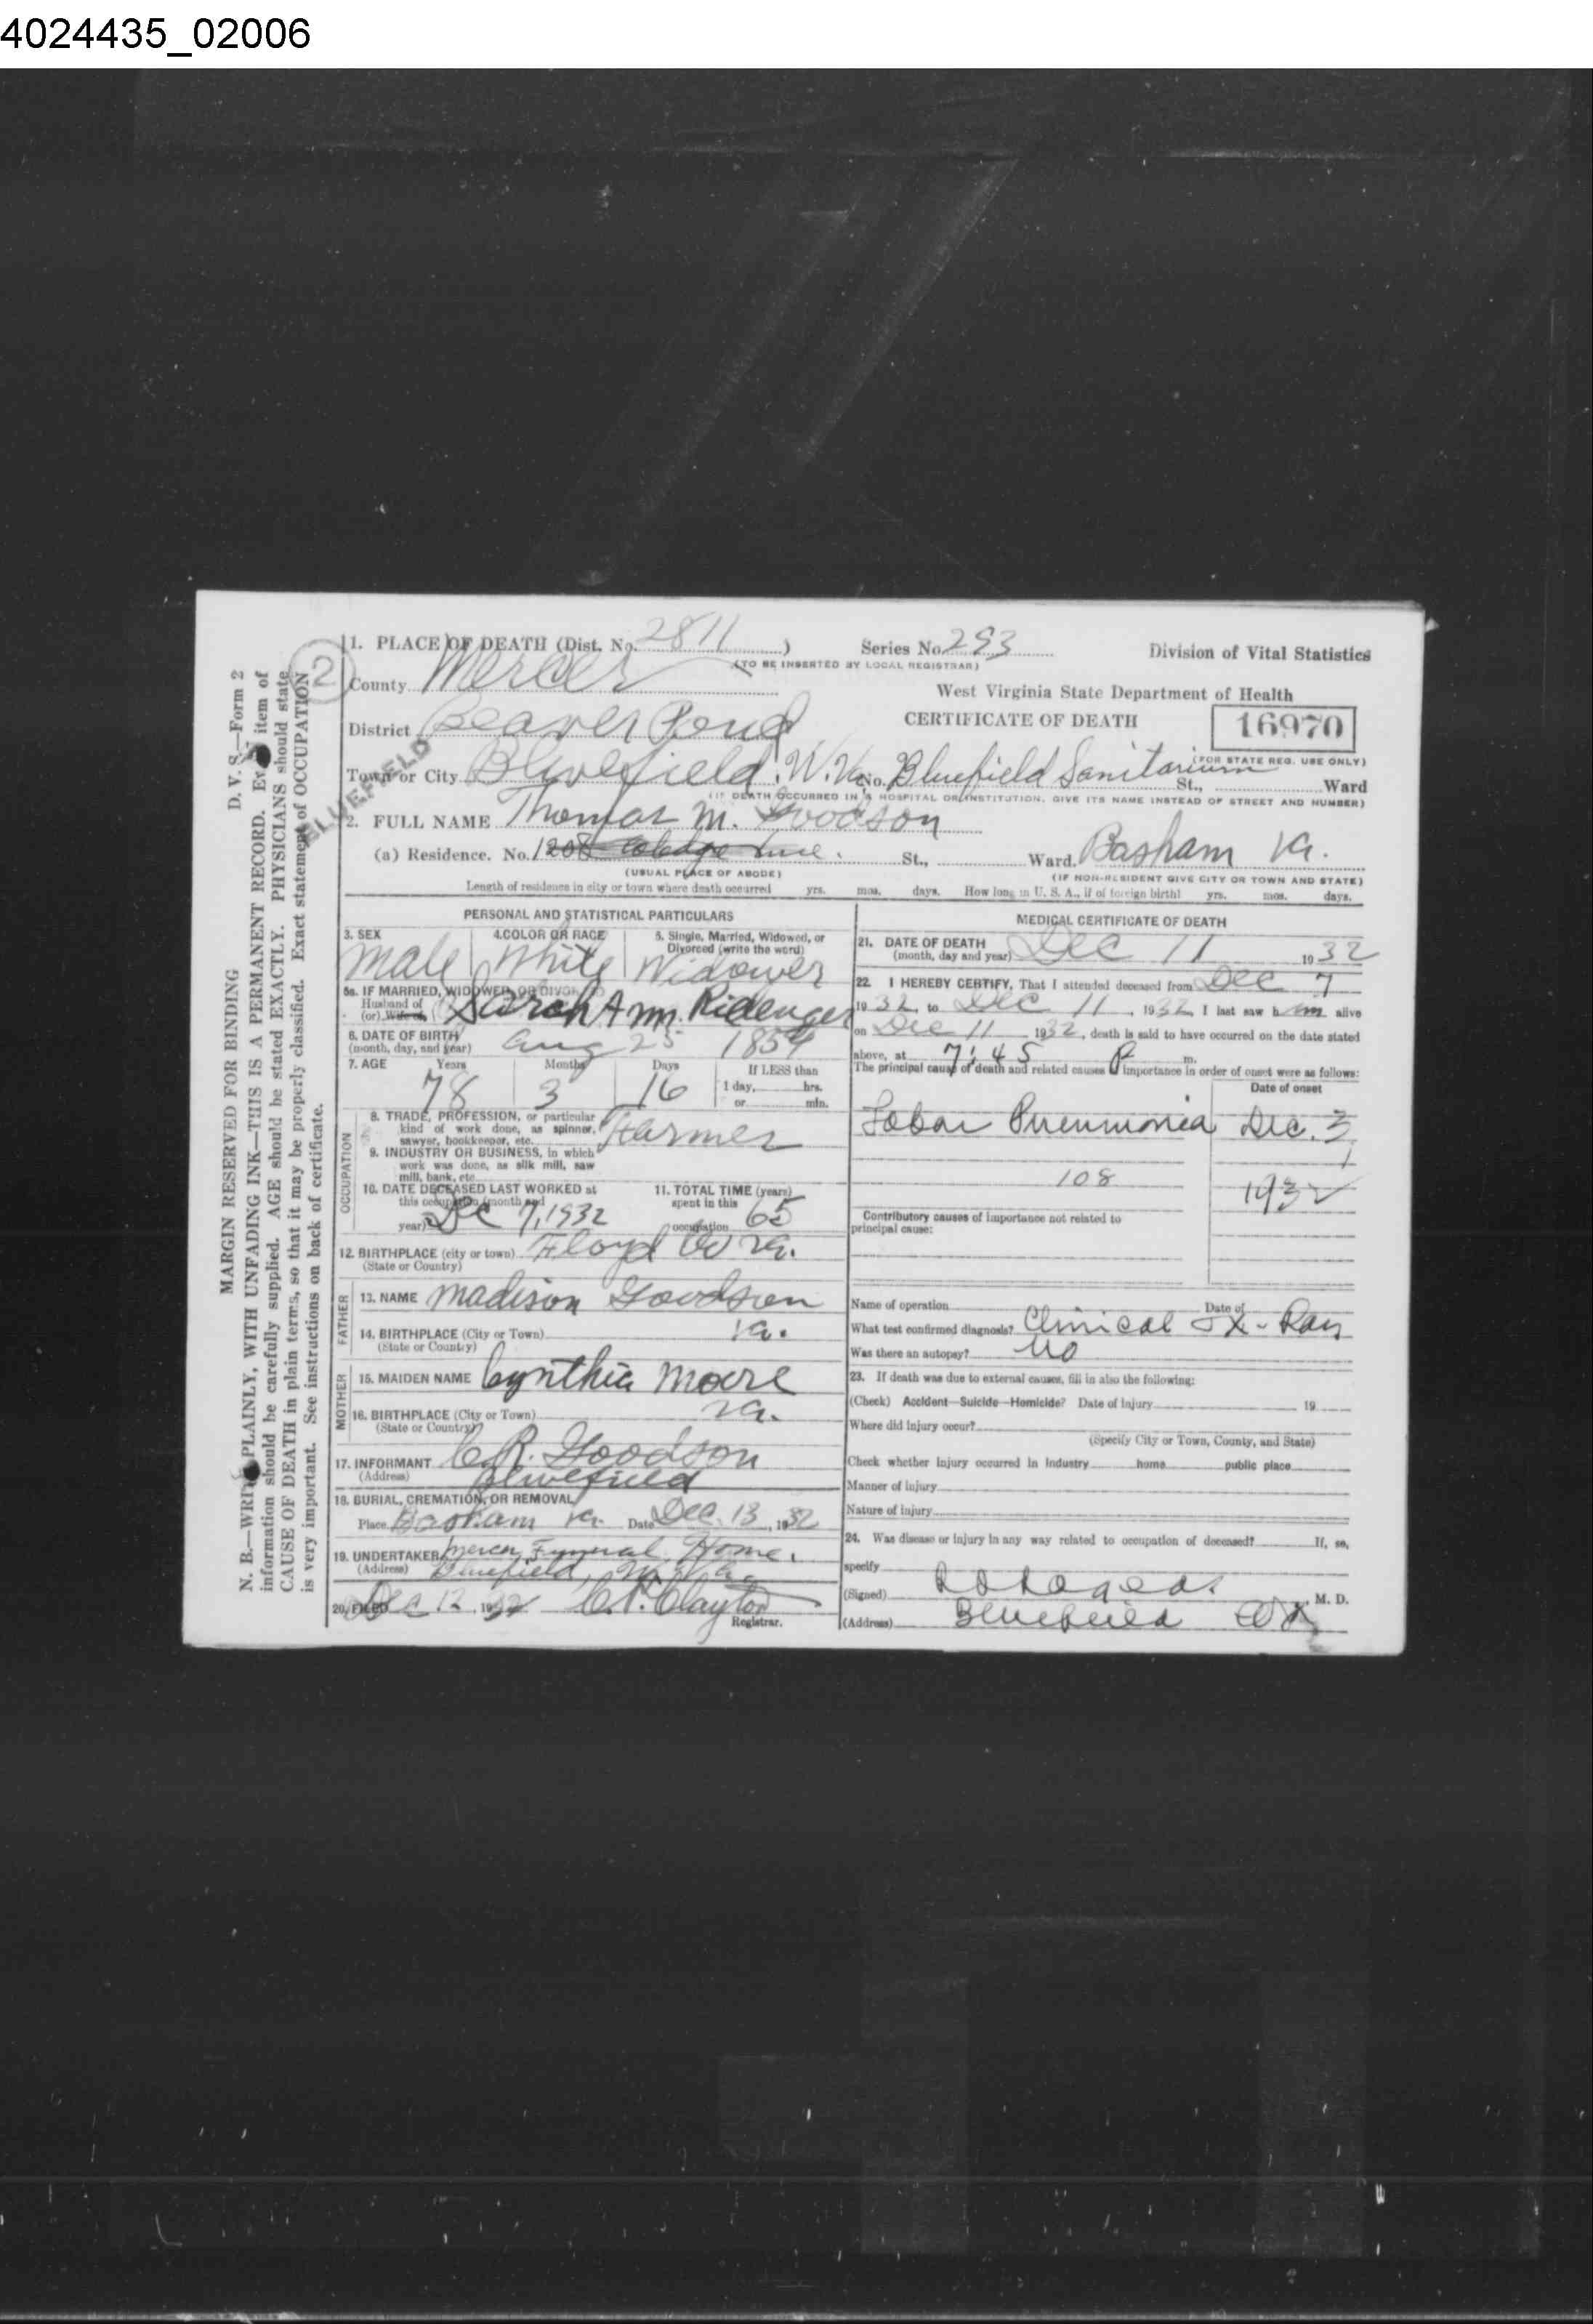 4024435_02006
MARGIN RESERVED FOR BINDING D. V. S.—Form 2
N. B.—WRITE PLAINLY, WITH UNFADING INK—THIS IS A PERMANENT RECORD. Every item of
information should be carefully supplied. AGE should be stated EXACTLY. PHYSICIANS should state
CAUSE OF DEATH in plain terms, so that it may be properly classified. Exact statement of OCCUPATION
is very important. See instructions on back of certificate.
2
BLUEFIELD
1. PLACE OF DEATH (Dist. No. 2811 ) Series No. 293 Division of Vital Statistics
(TO BE INSERTED BY LOCAL REGISTRAR)
County Mercer West Virginia State Department of Health
District Beaver Pond CERTIFICATE OF DEATH 16970
(FOR STATE REG. USE ONLY)
Town or City Bluefield W.Va. No. Bluefield Sanitarium St., Ward
(IF DEATH OCCURRED IN A HOSPITAL OR INSTITUTION, GIVE ITS NAME INSTEAD OF STREET AND NUMBER)
2. FULL NAME Thomas M. Goodson
(a) Residence. No. 1208 St., Ward. Basham Va.
(USUAL PLACE OF ABODE) (IF NON-RESIDENT GIVE CITY OR TOWN AND STATE)
Length of residence in city or town where death occurred yrs. mos. days. How long in U. S. A., if of foreign birth? yrs. mos. days.
PERSONAL AND STATISTICAL PARTICULARS
3. SEX 4. COLOR OR RACE 5. Single, Married, Widowed, or
Divorced (write the word)
Male White Widower
5a. IF MARRIED, WIDOWED, OR DIVORCED
Husband of
(or) Wife of Sarah Ann Ridenger
6. DATE OF BIRTH
(month, day, and year) Aug 25 1854
7. AGE Years Months Days If LESS than
78 3 16 1 day, hrs.
or min.
OCCUPATION
8. TRADE, PROFESSION, or particular
kind of work done, as spinner,
sawyer, bookkeeper, etc. Farmer
9. INDUSTRY OR BUSINESS, in which
work was done, as silk mill, saw
mill, bank, etc.
10. DATE DECEASED LAST WORKED at 11. TOTAL TIME (years)
this occupation (month and spent in this
year) Dec 7, 1932 occupation 65
12. BIRTHPLACE (city or town) Floyd Co Va.
(State or Country)
FATHER
13. NAME Madison Goodson
14. BIRTHPLACE (City or Town) Va.
(State or Country)
MOTHER
15. MAIDEN NAME Cynthia Moore
16. BIRTHPLACE (City or Town) Va.
(State or Country)
17. INFORMANT C.R. Goodson
(Address) Bluefield
18. BURIAL, CREMATION, OR REMOVAL
Place Basham Va. Date Dec. 13, 1932
19. UNDERTAKER Mercer Funeral Home.
(Address) Bluefield, W. Va.
20. FILED Dec 12, 1932 C.P. Clayton
Registrar.
MEDICAL CERTIFICATE OF DEATH
21. DATE OF DEATH
(month, day and year) Dec 11 1932
22. I HEREBY CERTIFY, That I attended deceased from Dec 7
1932, to Dec 11, 1932, I last saw him alive
on Dec 11 1932, death is said to have occurred on the date stated
above, at 7:45 P m.
The principal cause of death and related causes of importance in order of onset were as follows:
Date of onset
Lobar Pneumonia Dec. 3,
108 1932
Contributory causes of importance not related to
principal cause:
Name of operation Date of
What test confirmed diagnosis? Clinical X-Ray
Was there an autopsy? No
23. If death was due to external causes, fill in also the following:
(Check) Accident—Suicide—Homicide? Date of injury 19
Where did injury occur?
(Specify City or Town, County, and State)
Check whether injury occurred in industry home public place
Manner of injury
Nature of injury
24. Was disease or injury in any way related to occupation of deceased? If, so,
specify
(Signed) M. D.
(Address) Bluefield